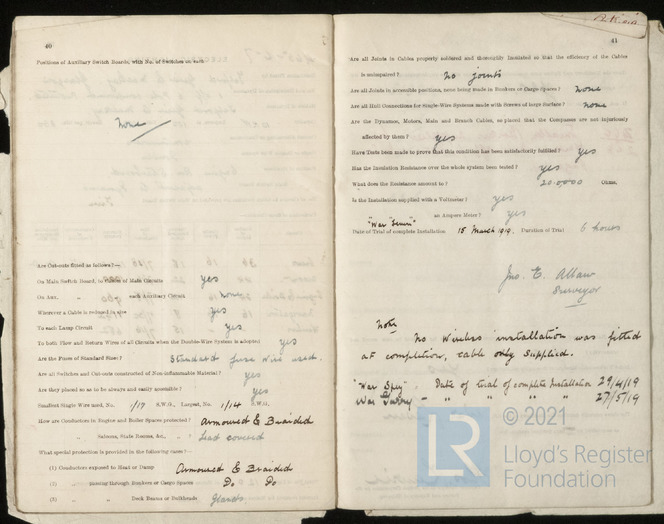 40
Positions of Auxiliary Switch Boards, with No. of Switches on each
None
Are Cut-outs fitted as follows?—
On Main Switch Board, to Cables of Main Circuits yes
On Aux. " each Auxiliary Circuit none
Wherever a Cable is reduced in size yes
To each Lamp Circuit yes
To both Flow and Return Wires of all Circuits when the Double-Wire System is adopted yes
Are the Fuses of Standard Sizes? Standard fuse wire used.
Are all Switches and Cut-outs constructed of Non-inflammable Material? yes
Are they placed so as to be always and easily accessible? yes
Smallest Single Wire used, No. 1/17 S.W.G., Largest, No. 1/14 S.W.G.
How are Conductors in Engine and Boiler Spaces protected? Armoured & Braided
" Saloons, State Rooms, &c., " ? Lead covered
What special protection is provided in the following cases?—
(1) Conductors exposed to Heat or Damp Armoured & Braided
(2) " passing through Bunkers or Cargo Spaces Do. Do.
(3) " " Deck Beams or Bulkheads Glands
41
Are all Joints in Cables properly soldered and thoroughly insulated so that the efficiency of the Cables
is unimpaired? No joints
Are all Joints in accessible positions, none being made in Bunkers or Cargo Spaces? none
Are all Hull Connections for Single-Wire Systems made with Screws of large Surface? none
Are the Dynamos, Motors, Main and Branch Cables, so placed that the Compasses are not injuriously
affected by them? yes
Have Tests been made to prove that this condition has been satisfactorily fulfilled? yes
Has the Insulation Resistance over the whole system been tested? yes
What does the Resistance amount to? 20.0000 Ohms.
Is the Installation supplied with a Voltmeter? yes
" " an Ampere Meter? yes
Date of Trial of complete Installation 15 March 1919. Duration of Trial 6 hours
Surveyor
Note
No Wireless installation was fitted
at completion, cable only supplied.
"War Spey" Date of trial of complete Installation 29/4/19
" " " " " 27/5/19
© 2021
LR
Lloyd's Register
Foundation